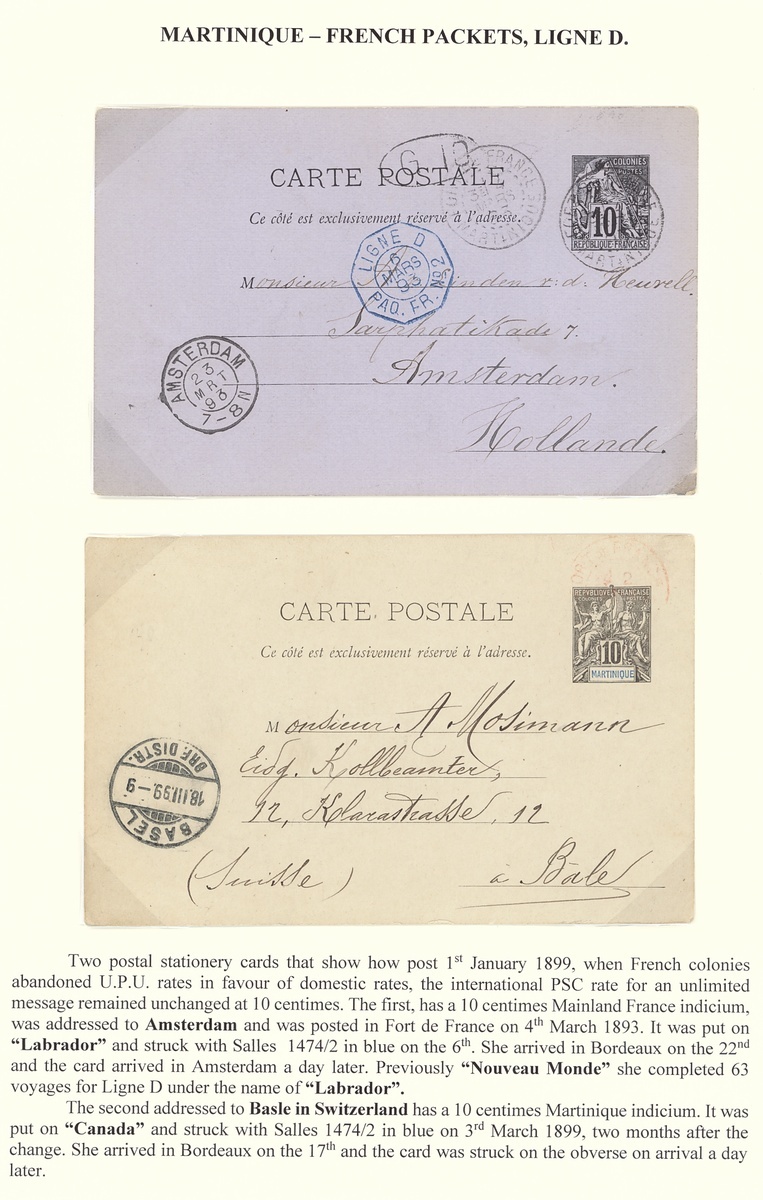 MARTINIQUE – FRENCH PACKETS, LIGNE D.
G 10
CARTE POSTALE
FRANCE
MARTINIQUE
COLONIES
POSTES
10
RÉPUBLIQUE FRANÇAISE
Ce côté est exclusivement réservé à l'adresse.
LIGNE D
6
MARS
93
PAQ. FR. No 2
Monsieur
Sarphatikade 7.
Amsterdam.
Hollande.
AMSTERDAM
23
MRT
93
7-8N
CARTE POSTALE
Ce côté est exclusivement réservé à l'adresse.
REPVBLIQVE FRANÇAISE
COLONIES POSTES
10
MARTINIQUE
Monsieur A Mosimann
Eidg. Kollbeamter,
12, Klarastrasse, 12
(Suisse) à Bâle
BASEL
18.III.99.-9
BRF. DISTR.
Two postal stationery cards that show how post 1st January 1899, when French colonies
abandoned U.P.U. rates in favour of domestic rates, the international PSC rate for an unlimited
message remained unchanged at 10 centimes. The first, has a 10 centimes Mainland France indicium,
was addressed to Amsterdam and was posted in Fort de France on 4th March 1893. It was put on
“Labrador” and struck with Salles 1474/2 in blue on the 6th. She arrived in Bordeaux on the 22nd
and the card arrived in Amsterdam a day later. Previously “Nouveau Monde” she completed 63
voyages for Ligne D under the name of “Labrador”.
The second addressed to Basle in Switzerland has a 10 centimes Martinique indicium. It was
put on “Canada” and struck with Salles 1474/2 in blue on 3rd March 1899, two months after the
change. She arrived in Bordeaux on the 17th and the card was struck on the obverse on arrival a day
later.